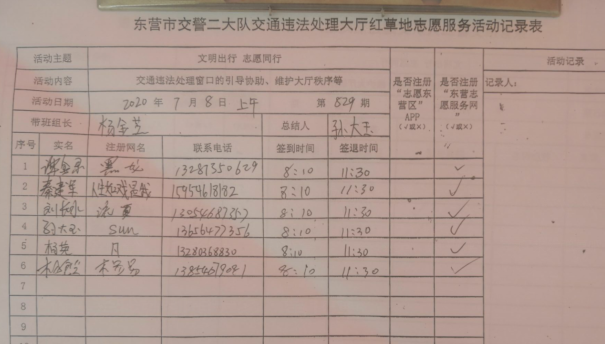 东营市交警二大队交通违法处理大厅红草地志愿服务活动记录表
活动主题 文明出行 志愿同行
活动内容 交通违法处理窗口的引导协助、维护大厅秩序等
活动日期 2020 年 7 月 8 日 上午 第 529 期
带班组长 总结人 孙大玉
是否注册“志愿东营区”APP（√或×）
是否注册“东营志愿服务网”（√或×）
活动记录
记录人：
序号 实名 注册网名 联系电话 签到时间 签退时间
1 13287350629 8:10 11:30 ✓
2 秦建军 15954618182 8:10 11:30 ✓
3 8:10 11:30 ✓
4 孙大玉 Sun 13656477356 8:10 11:30 ✓
5 杨艳 月 13280368830 8:10 11:30 ✓
6 8:10 11:30 ✓
7
8
9